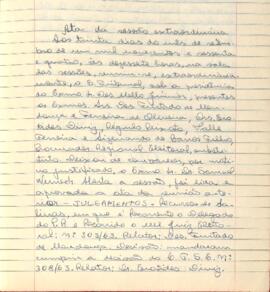 Ata da sessão extraordinária
Aos trinta dias do mês de
bro de um mil novecentos e sessenta
e quatro, às dezessete horas, na sala
das sessões, reuniu-se, extraordinaria
mente, o E. Tribunal, sob a presidência
do Exmo. Des. Mello, presentes
os Exmos. Srs. Des. Furtado de Men
donça e Ferreira de Oliveira, Drs.
Diniz,
Ferreira e de Barros Filho,
Procurador Regional Eleitoral, substi
tuto. Deixou de comparecer, por mo
tivo justificado, o Exmo. Sr. Dr.
Aberta a sessão, foi lida e
aprovada a ata da reunião ante
rior - JULGAMENTOS - Recurso de
linas, em que é Recorrente o Delegado
do P.R e Recorrido o M. Juiz Eleito
ral: Nº 303/63. Relator: Des. Furtado
de Mendonça. Decisão: mandaram
cumprir a decisão do C. T. S. E. Nº
308/63. Relator: Dr. Diniz.